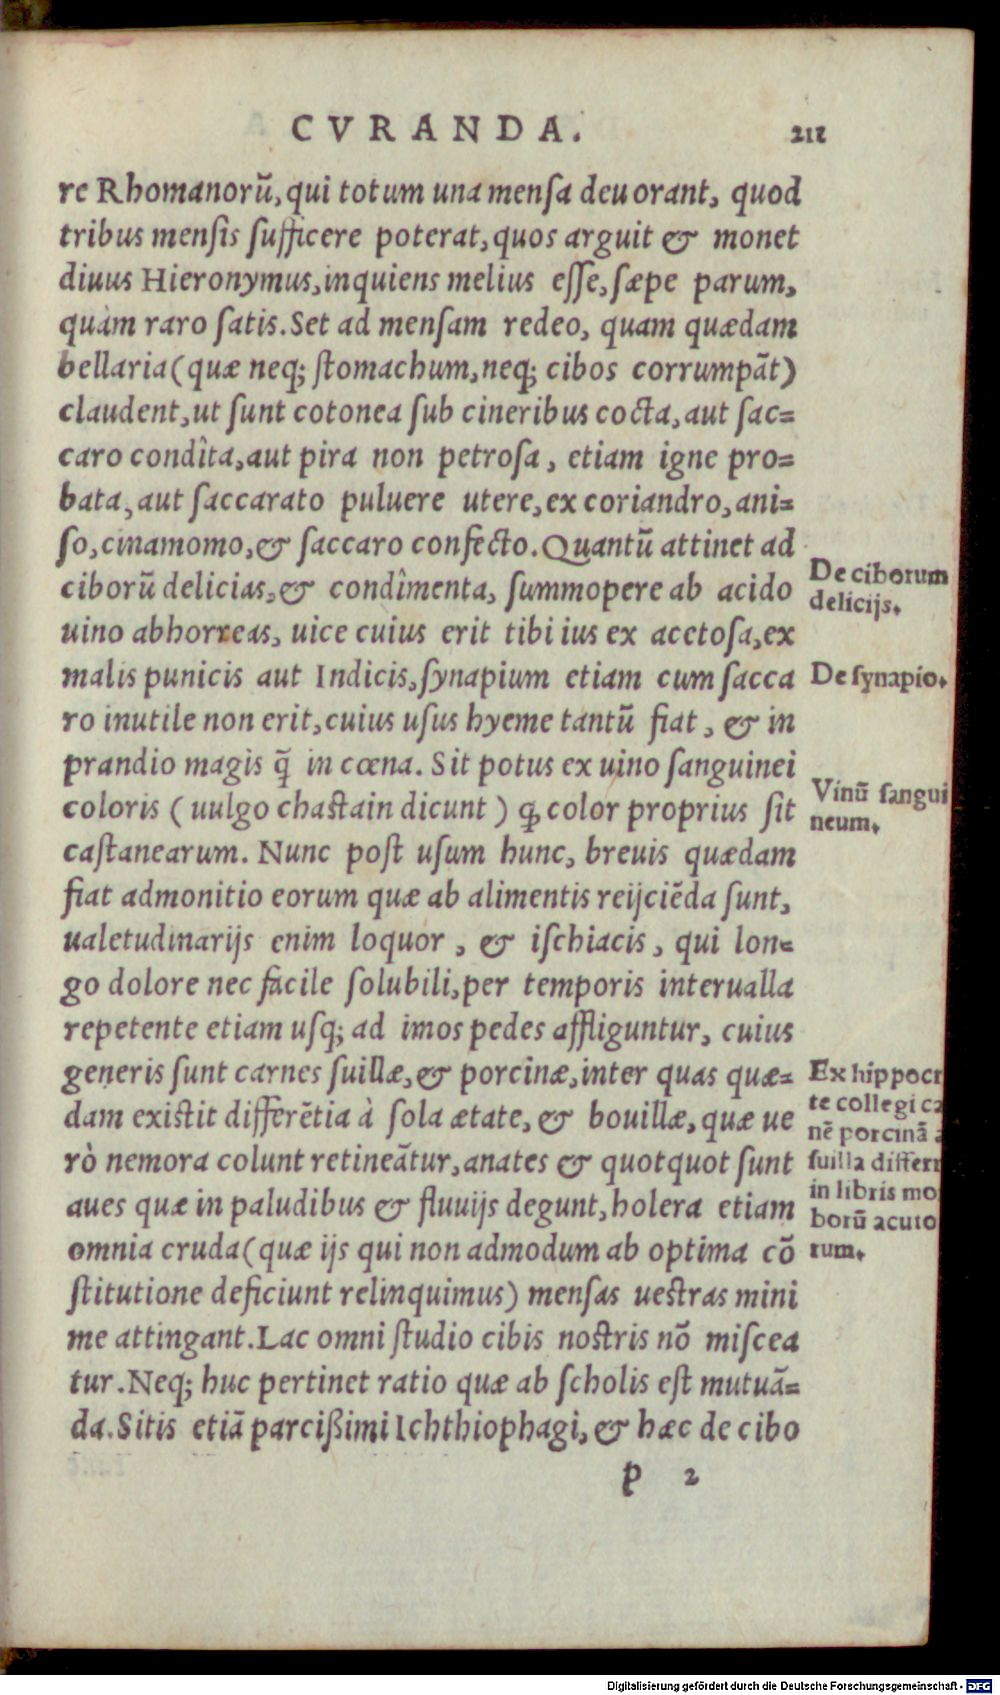 CVRANDA. 211
re Rhomanorū, qui totum una mensa deuorant, quod
tribus mensis sufficere poterat, quos arguit & monet
diuus Hieronymus, inquiens melius esse, sæpe parum,
quàm raro satis. Set ad mensam redeo, quam quædam
bellaria (quæ neq; stomachum, neq; cibos corrumpāt)
claudent, ut sunt cotonea sub cineribus cocta, aut sac=
caro condîta, aut pira non petrosa, etiam igne pro=
bata, aut saccarato puluere utere, ex coriandro, ani=
so, cinamomo, & saccaro confecto. Quantū attinet ad
ciborū delicias, & condîmenta, summopere ab acido
De ciborum
delicijs.
uino abhorreas, uice cuius erit tibi ius ex acetosa, ex
malis punicis aut Indicis, synapium etiam cum sacca
De synapio.
ro inutile non erit, cuius usus hyeme tantū fiat, & in
prandio magis q̃ in cœna. Sit potus ex uino sanguinei
Vinū sangui
neum.
coloris (uulgo chastain dicunt) ꝙ color proprius sit
castanearum. Nunc post usum hunc, breuis quædam
fiat admonitio eorum quæ ab alimentis reijciēda sunt,
ualetudinarijs enim loquor, & ischiacis, qui lon=
go dolore nec facile solubili, per temporis interualla
repetente etiam usq; ad imos pedes affliguntur, cuius
generis sunt carnes suillæ, & porcinæ, inter quas quæ=
Ex hippocr
te collegi ca
nē porcinā a
suilla differr
in libris mo
borū acuto
rum.
dam existit differētia à sola ætate, & bouillæ, quæ ue
rò nemora colunt retineātur, anates & quotquot sunt
aues quæ in paludibus & fluuijs degunt, holera etiam
omnia cruda (quæ ijs qui non admodum ab optima cō
stitutione deficiunt relinquimus) mensas uestras mini
me attingant. Lac omni studio cibis nostris nō miscea
tur. Neq; huc pertinet ratio quæ ab scholis est mutuā=
da. Sitis etiā parcißimi Ichthiophagi, & hæc de cibo
p 2
Digitalisierung gefördert durch die Deutsche Forschungsgemeinschaft - DFG